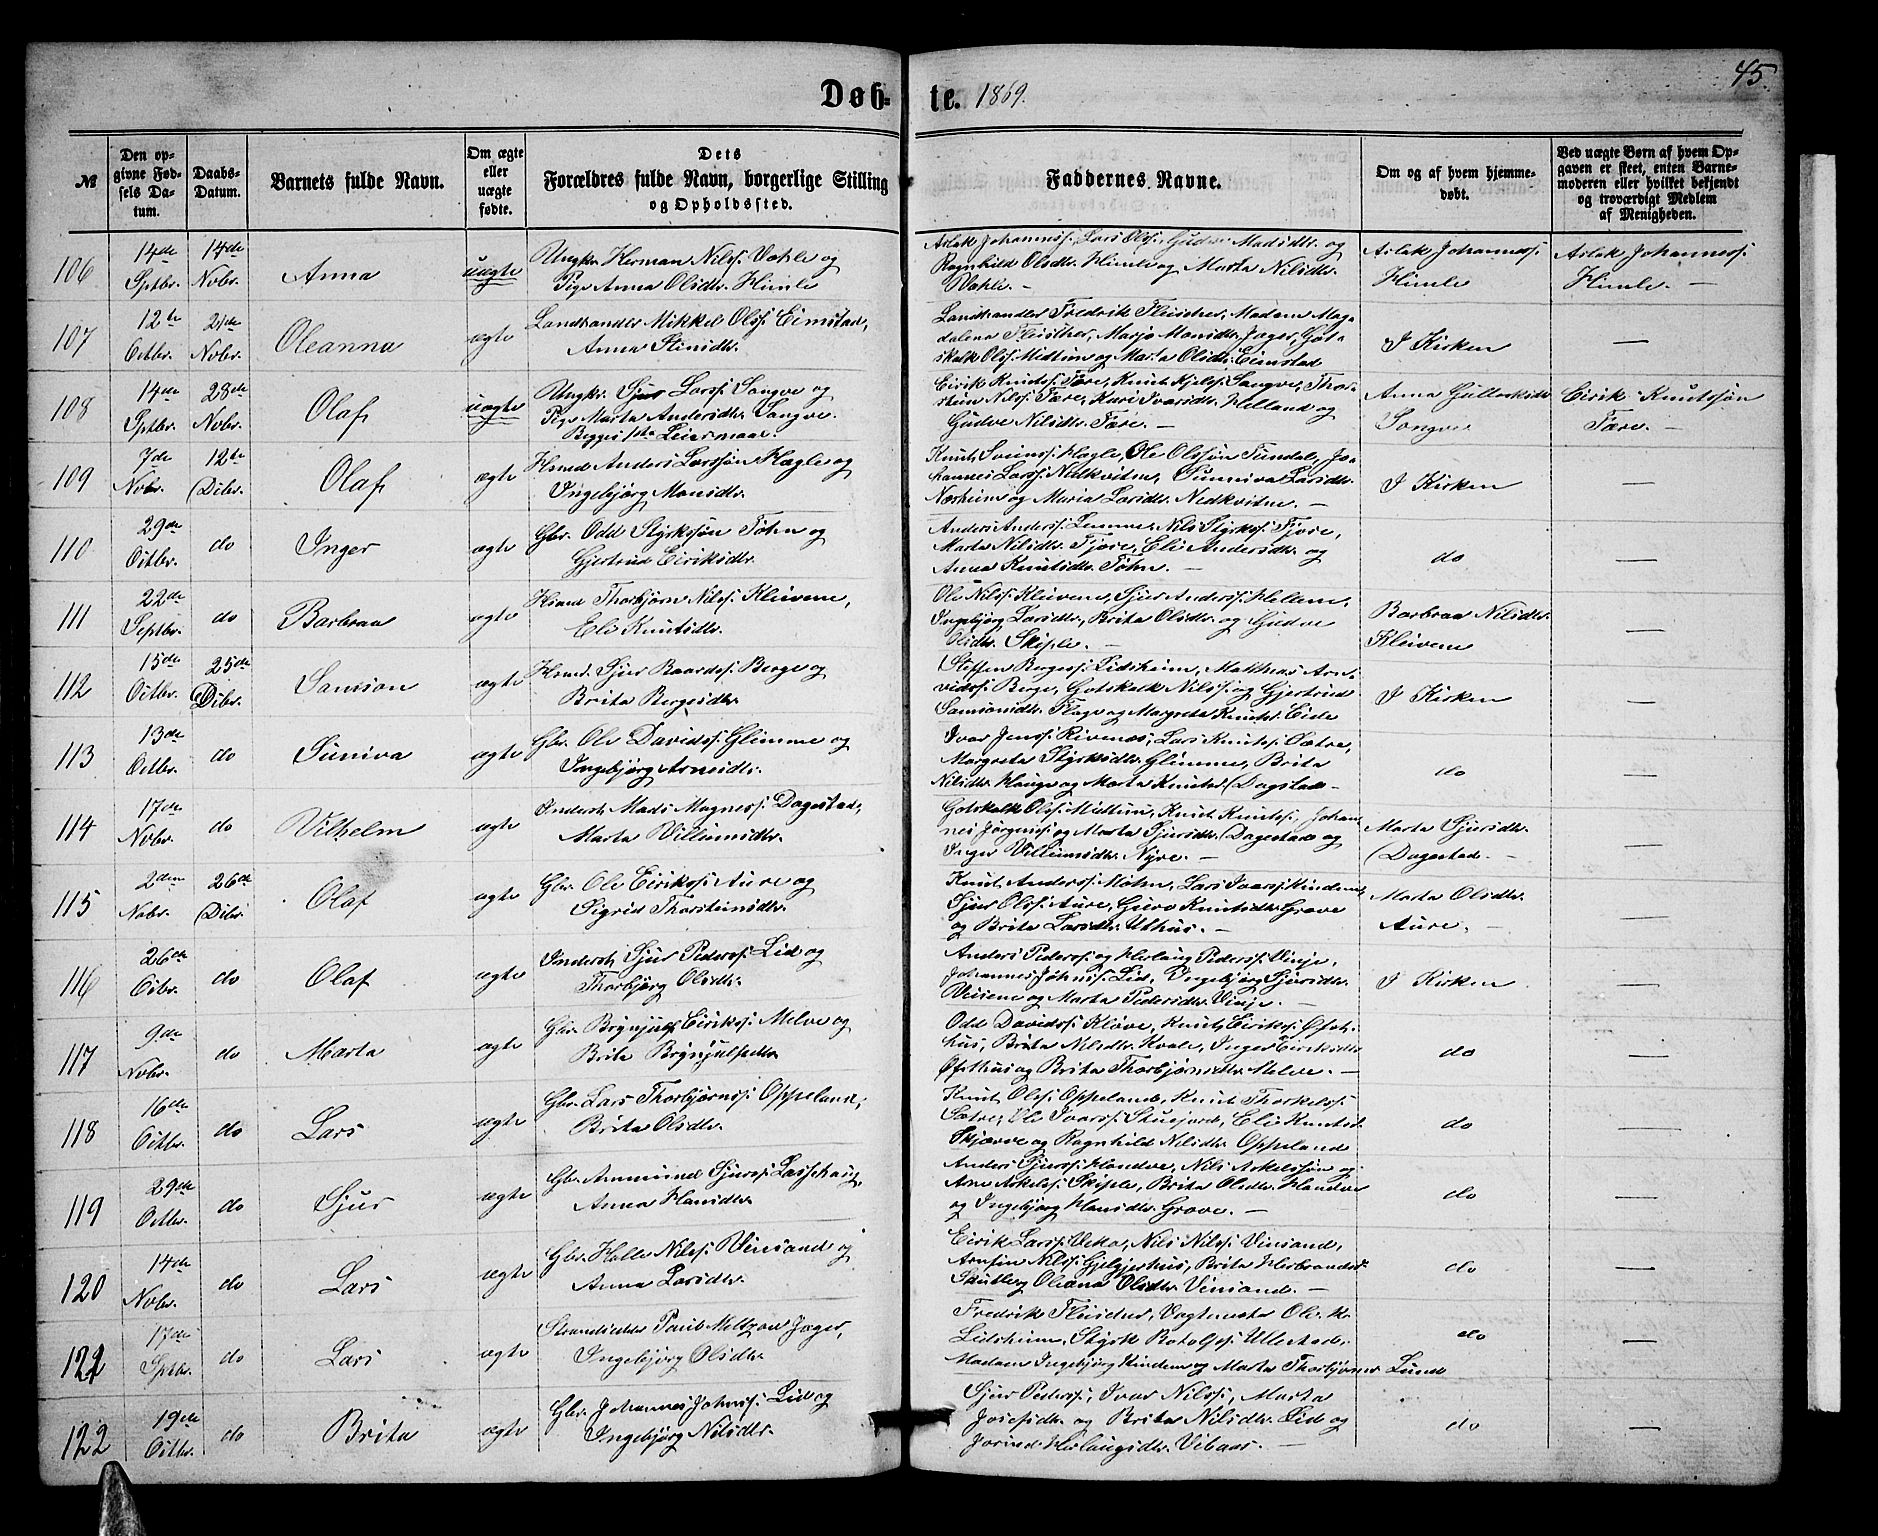 45.
Døb- te. 1869.
№
Den op-
givne Fød-
sels Da-
tum.
Daabs-
Datum.
Barnets fulde Navn.
Om ægte
eller
uægte
fødte.
Dets
Forældres fulde Navn, borgerlige Stilling
og Opholdssted.
Faddernes Navne.
Om og af hvem hjemme-
døbt.
Ved uægte Børn af hvem Op-
gaven er skeet, enten Barne-
moderen eller hvilket bekjendt
og troværdigt Medlem
af Menigheden.
106 14de Sptbr. 14de Nobr. Anna uægte
Ungkr. Herman Nilss: Væhle og
Pige Anna Olsdtr. Himle
Aslak Johanness: Lars Olss: Gudve Madsdtr. og
Ragnhild Olsdtr. Himle og Marta Nilsdtr.
Væhle. —
Aslak Johanness:
Himle
Aslak Johanness:
Himle. —
107 12te Octbr. 21de Nobr. Oleanna ægte
Landhandler Mikkel Olss: Eimstad,
Anna Stensdtr.
Landhandler Fredrik Fleischer, Madam Mag-
dalena Fleischer, Marjo Monsdtr. Jager, Got-
skalk Olss: Midtun og Marta Olsdtr. Eimstad
I Kirken —
108 14de Sptbr. 28de Nobr. Olaf uægte
Ungkr. Sjur Larss: Songve og
Pige Marta Andersdtr. Songve.
Begges 1ste Leiermaal.
Eirik Knutss: Fære, Knut Kjelss: Songve, Thor-
stein Nilss: Fære, Kari Ivarsdtr. Helland og
Gudve Nilsdtr. Fære. —
Anna Gulleiksdtr.
Songve
Eirik Knutssøn
Fære. —
109 7de Nobr. 12te Dcbr. Olaf ægte
Hsmd Anders Larssøn Hægle og
Ingebjørg Monsdtr.
Knut Sveinss: Hægle, Ole Olssøn Tundal, Jo-
hannes Larss: Nedkvitne, Sunniva Larsdtr.
Næsheim og Maria Larsdtr. Nedkvitne. —
I Kirken —
110 29de Octbr. do Inger ægte
Gbr. Odd Styrkssøn Føhn og
Gjertrud Eiriksdtr.
Anders Anderss: Lemme, Nils Styrkss: Fjøre,
Marta Nilsdtr. Fjøre, Eli Andersdtr. og
Anna Knutsdtr. Føhn. —
do —
111 22de Septbr. do Barbraa ægte
Hsmd Thorbjørn Nilss: Kleivene,
Eli Knutsdtr.
Ole Nilss: Kleivene, Sjur Anderss: Hellem,
Ingebjørg Larsdtr., Brita Olsdtr. og Gudve
Olsdtr. Skiple. —
Barbraa Nilsdtr.
Kleivene —
112 15de Octbr. 25de Dcbr. Samson ægte
Hsmd. Sjur Baardss: Berge og
Brita Bergesdtr.
Steffen Bergess: Lidsheim, Matthias Arn-
vidss: Berge, Gotskalk Nilss: og Gjertrud
Samsonsdtr. Flage og Margreta Knutsd. Eide
I Kirken —
113 13de Octbr. do Suniva ægte
Gbr. Ole Davidss: Glimme og
Ingebjørg Arnesdtr.
Ivar Jenss: Rivenæs, Lars Knutss: Sætre,
Margreta Styrksdtr. Glimme, Brita
Nilsdtr. Hauge og Marta Knutsd. Dagstad —
do —
114 17de Nobr. do Vilhelm ægte
Inderst. Mads Magness: Dagestad,
Marta Villumsdtr.
Gotskalk Olss: Midtun, Knut Knutss: Johan-
nes Jørgenss: og Marta Sjursdtr. Dagestad og
Inger Villumsdtr. Nyre. —
Marta Sjursdtr.
Dagestad. — —
115 2den Nobr. 26de Dcbr. Olaf ægte
Gbr. Ole Eirikss: Aure og
Sigrid Thorsteinsdtr.
Knut Anderss: Møhn, Lars Ivarss: Rindene
Sjur Olss: Aure, Guro Knutsdtr. Grove
og Brita Larsdtr. Uthus. —
Marta Olsdtr.
Aure. — —
116 26de Octbr. do Olaf ægte
Inderst. Sjur Pederss: Lid og
Thorbjørg Olsdtr.
Anders Pederss: og Herlaug Pederss: Vinje,
Johannes Johnss: Lid, Ingebjørg Sjursdtr.
og Marta Pedersdtr. Vinje. —
I Kirken —
117 9de Nobr. do Marta ægte
Gbr. Brynjulf Eirikss: Melve og
Brita Brynjulfsdtr.
Odd Davidss: Kløve, Knut Eirikss: Øfst-
hus, Brita Nilsdtr. Kvale, Inger Eiriksdtr.
Øfsthus og Brita Thorbjørnsdtr. Melve. —
do —
118 16de Octbr. do Lars ægte
Gbr. Lars Thorbjørnss: Oppeland,
Brita Olsdtr.
Knut Olss: Oppeland, Knut Thorkelss:
Sætre, Ole Ivarss: Eli Knutsd.
Skjærve og Ragnhild Nilsdtr. Oppeland
do —
119 29de Octbr. do Sjur ægte
Gbr. Ammund Sjurss: Lassehaug,
Anna Hansdtr.
Anders Sjurss: Klandve, Nils Askelssøn og
Arne Askelss: Skiple, Brita Olsdtr. Klandve
og Ingebjørg Hansdtr. Grove. —
do —
120 14de Nobr. do Lars ægte
Gbr. Halle Nilss: Vinsand og
Anna Larsdtr.
Eirik Larss: Veka, Nils Nilss: Vinsand,
Arnfin Nilss: Gjelgjerhus, Brita Herbrandsd.
Skutleg Oleana Olsdtr. Vinsand. —
do —
121 17de Sptbr. do Lars ægte
Strandsidder Paul Meltzon Jager,
Ingebjørg Olsdtr.
Fredrik Fleischer, Vagtmester Ole K.
Lidsheim, Styrk Rotolfss: Ullestad,
Madam Ingebjørg Kindem og Marta Thorbjørnsd. Lund
do —
122 19de Octbr. do Brita ægte
Gbr. Johannes Johnss: Lid og
Ingebjørg Nilsdtr.
Sjur Pederss:, Ivar Nilss:, Marta
Josefsdtr. og Brita Nilsdtr. Lid og
Jorind Herlaugsdtr. Vibaas. —
do —